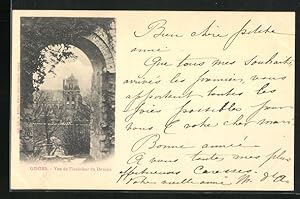 Bien chère petite
amie
Que tous mes souhaits
arrivés les premiers vous
apportent toutes les
joies possibles pour
vous & votre cher mari
Bonne année
A vous toutes mes plus
affectueuses caresses.
Votre vieille amie M. d'A.
GISORS. - Vue de l'intérieur du Donjon